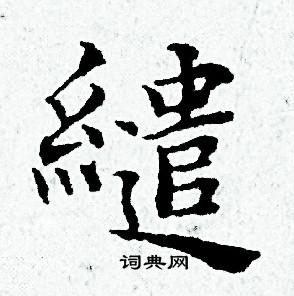 繾
词典网